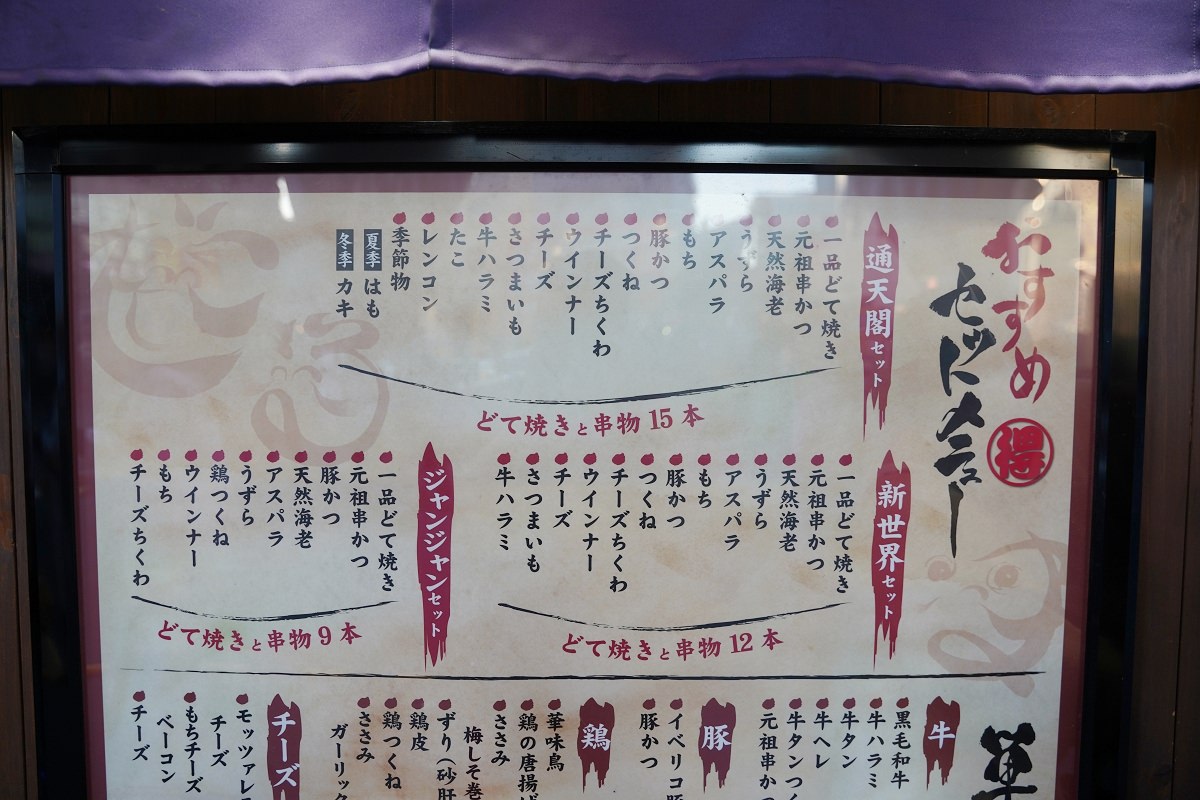 おすすめ
得
セットメニュー
通天閣セット
一品どて焼き
元祖串かつ
天然海老
うずら
アスパラ
もち
豚かつ
つくね
チーズちくわ
ウインナー
チーズ
さつまいも
牛ハラミ
たこ
レンコン
季節物
夏季 はも
冬季 カキ
どて焼きと串物15本
新世界セット
一品どて焼き
元祖串かつ
天然海老
うずら
アスパラ
もち
豚かつ
つくね
チーズちくわ
ウインナー
チーズ
さつまいも
牛ハラミ
どて焼きと串物12本
ジャンジャンセット
一品どて焼き
元祖串かつ
豚かつ
天然海老
アスパラ
うずら
鶏つくね
ウインナー
もち
チーズちくわ
どて焼きと串物9本
牛
黒毛和牛
牛ハラミ
牛タン
牛ヘレ
牛タンつく
元祖串か
豚
イベリコ豚
豚かつ
鶏
華味鳥
鶏の唐揚げ
ささみ
梅しそ巻
ずり(砂肝
鶏皮
鶏つくね
ささみ
ガーリック
チーズ
モッツァレ
チーズ
もちチーズ
ベーコン
チーズ